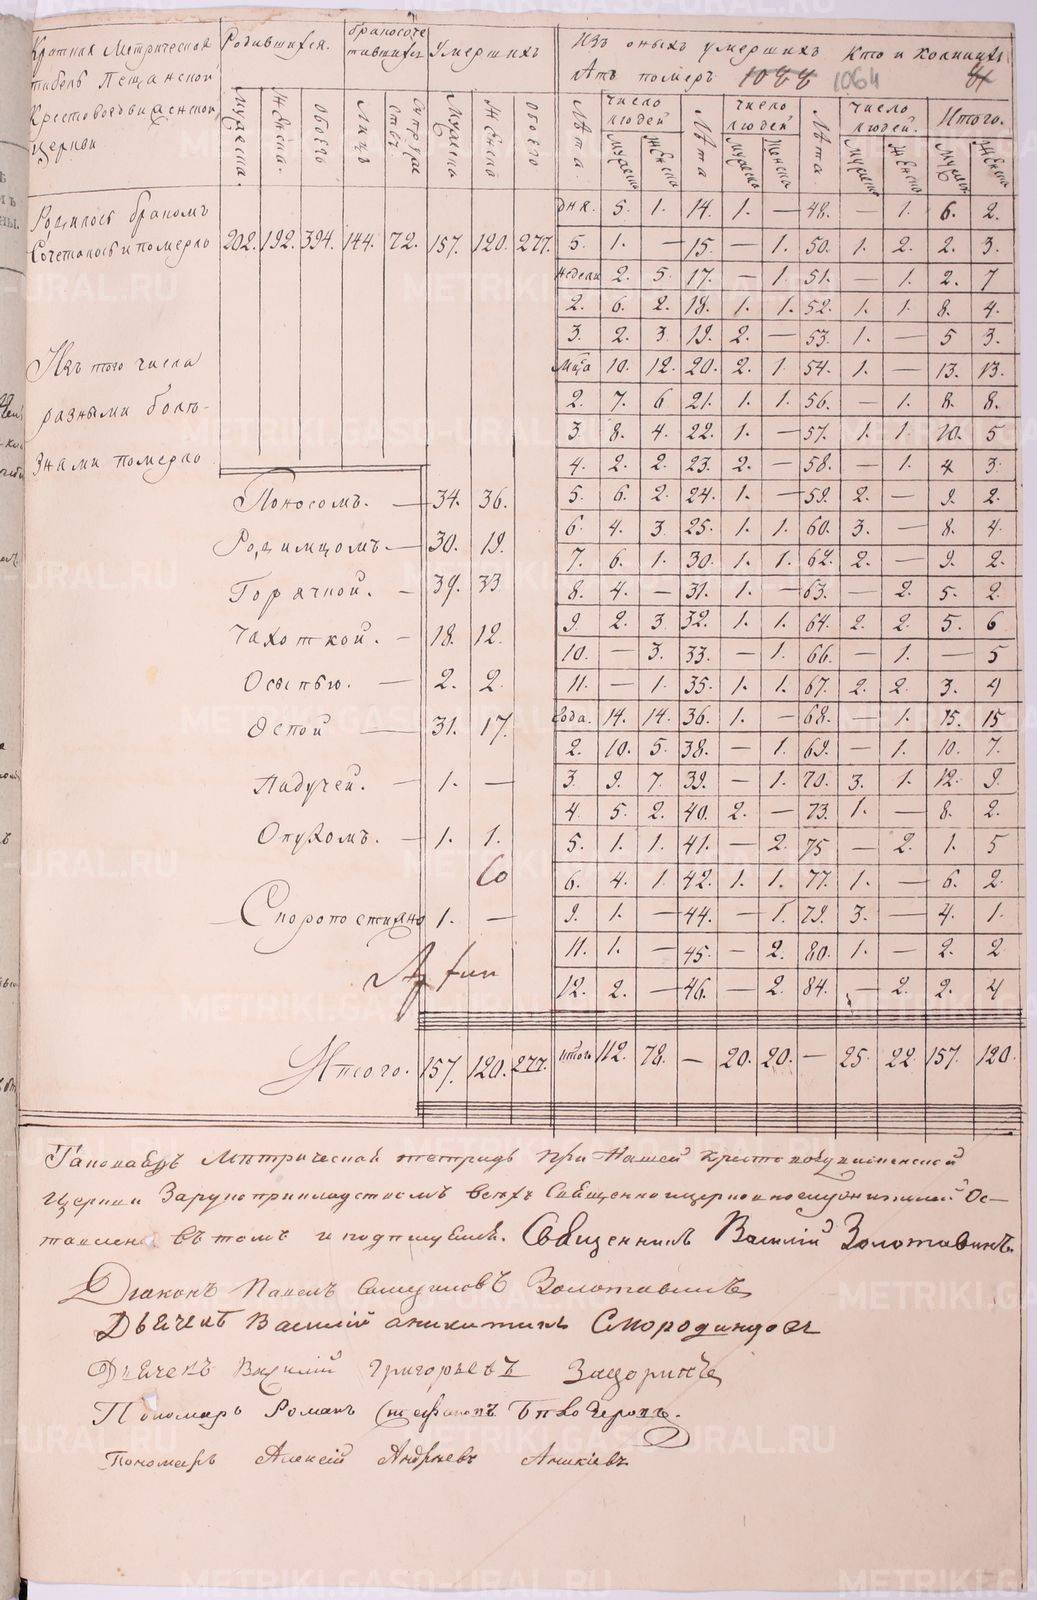 Краткая Метрическая Родившихся. бракосоче Умершихъ Изъ оныхъ умершихъ кто и коликихъ
табель Пещанской тавшихся лѣтъ померъ 1088 1064
Крестовоздвиженской Мужеска. Женска. Обоего Лицъ супруже ствъ. Мужеска Женска Обоего Лѣта число людей Лѣта число людей Лѣта число людей. Итого.
церкви Мужеска Женска Мужеска Женска Мужеска Женска Мужеска Женска
Родилось бракомъ дня. 5. 1. 14. 1. — 48. — 1. 6. 2.
Сочеталось и померло 202. 192. 394. 144. 72. 157. 120. 277. 5. 1. — 15. — 1. 50. 1. 2. 2. 3.
недели 2. 5. 17. — 1. 51. — 1. 2. 7
2. 6. 2. 18. 1. 1. 52. 1. 1. 8. 4.
3. 2. 3. 19. 2. — 53. 1. — 5 3.
Изъ того числа мѣца 10. 12. 20. 2. 1. 54. 1. — 13. 13.
разными болѣ- 2. 7. 6 21. 1. 1. 56. — 1. 8. 8.
3 8. 4. 22. 1. — 57. 1. 1. 10. 5
знами померло 4. 2. 2. 23. 2. — 58. — 1. 4 3.
Поносомъ. — 34. 36. 5. 6. 2. 24. 1. — 59. 2. — 9. 2.
6. 4. 3. 25. 1. 1. 60. 3. — 8. 4
Родимцомъ — 30. 19. 7. 6. 1. 30. 1. 1. 62. 2. — 9. 2.
Горячкой. — 39. 33 8. 4. — 31. 1. — 63. — 2. 5. 2.
Чахоткой. — 18. 12. 9. 2. 3. 32. 1. 1. 64. 2. 2. 5. 6
10. — 3. 33. — 1. 66. — 1. — 5
Осыпью. — 2. 2. 11. — 1. 35. 1. 1. 67. 2. 2. 3. 4
Оспой — 31. 17. года. 14. 14. 36. 1. — 68. — 1. 15. 15
2. 10. 5. 38. — 1. 69. — 1. 10. 7.
Падучей. — 1. — 3. 9. 7. 39. — 1. 70. 3. 1. 12. 9.
4. 5. 2. 40. 2. — 73. 1. — 8. 2.
Опухомъ. — 1. 1. 5. 1. 1. 41. — 2. 75 — 2. 1. 5
6. 4. 1. 42. 1. 1. 77. 1. — 6. 2.
Скоропостижно 1. — 9. 1. — 44. — 1. 79. 3. — 4. 1.
11. 1. — 45. — 2. 80. 1. — 2. 2
12. 2. — 46. — 2. 84. — 2. 2. 4
Итого. 157. 120. 277. итого 112. 78. — 20. 20. — 25. 22 157. 120.
Таковабъ Метрической тетрадь при Нашей Крестовоздвиженской
церкви За рукоприкладствомъ всехъ Священноцерковнослужителей Ос-
тавлена въ томъ и подпишемся. Священникъ Василій Золотавинъ.
Диаконъ Павелъ Самуиловъ Золотавинъ
Дьячекъ Василій Аникитинъ Смородинцовъ
Дьячекъ Василій Григорьевъ Задоринъ
Пономарь Романъ Стефановъ
Пономарь Алексій Андреевъ Аникіевъ
METRIKI.GASO-URAL.RU